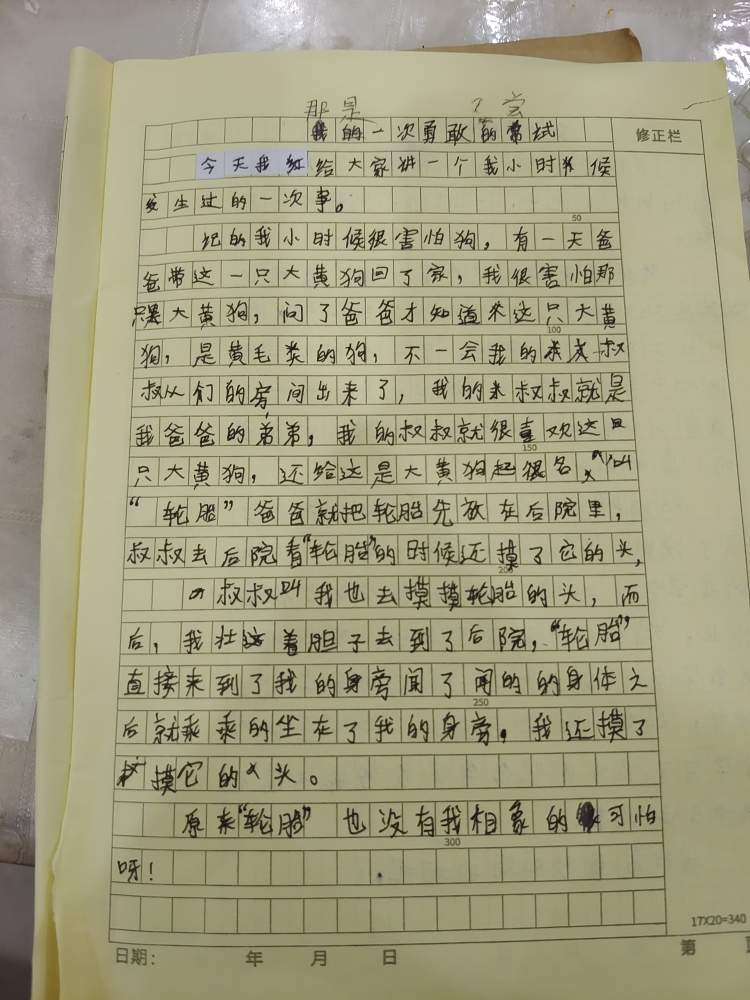 那是 了尝
我的一次勇敢的常试
修正栏
今天我红给大家讲一个我小时候
发生过的一次事。
50
记的我小时候很害怕狗，有一天爸
爸带这一只大黄狗回了家，我很害怕那
只是大黄狗，问了爸爸才知道来这只大黄
100
狗，是黄毛类的狗，不一会我的叔
叔从们的房间出来了，我的来叔叔就是
我爸爸的弟弟，我的叔叔就很喜欢这只
150
只大黄狗，还给这是大黄狗起很名叫
“轮胎”爸爸就把轮胎先放在后院里，
叔叔去后院看“轮胎”的时候还摸了它的头，
200
叔叔叫我也去摸摸轮胎的头，而
后，我壮这着胆子去到了后院，“轮胎”
直接来到了我的身旁闻了闻的的身体之
250
后就乘乘的坐在了我的身旁。我还摸了
摸它的头。
原来“轮胎”也没有我相象的可怕
300
呀！
17X20=340
日期： 年 月 日 第